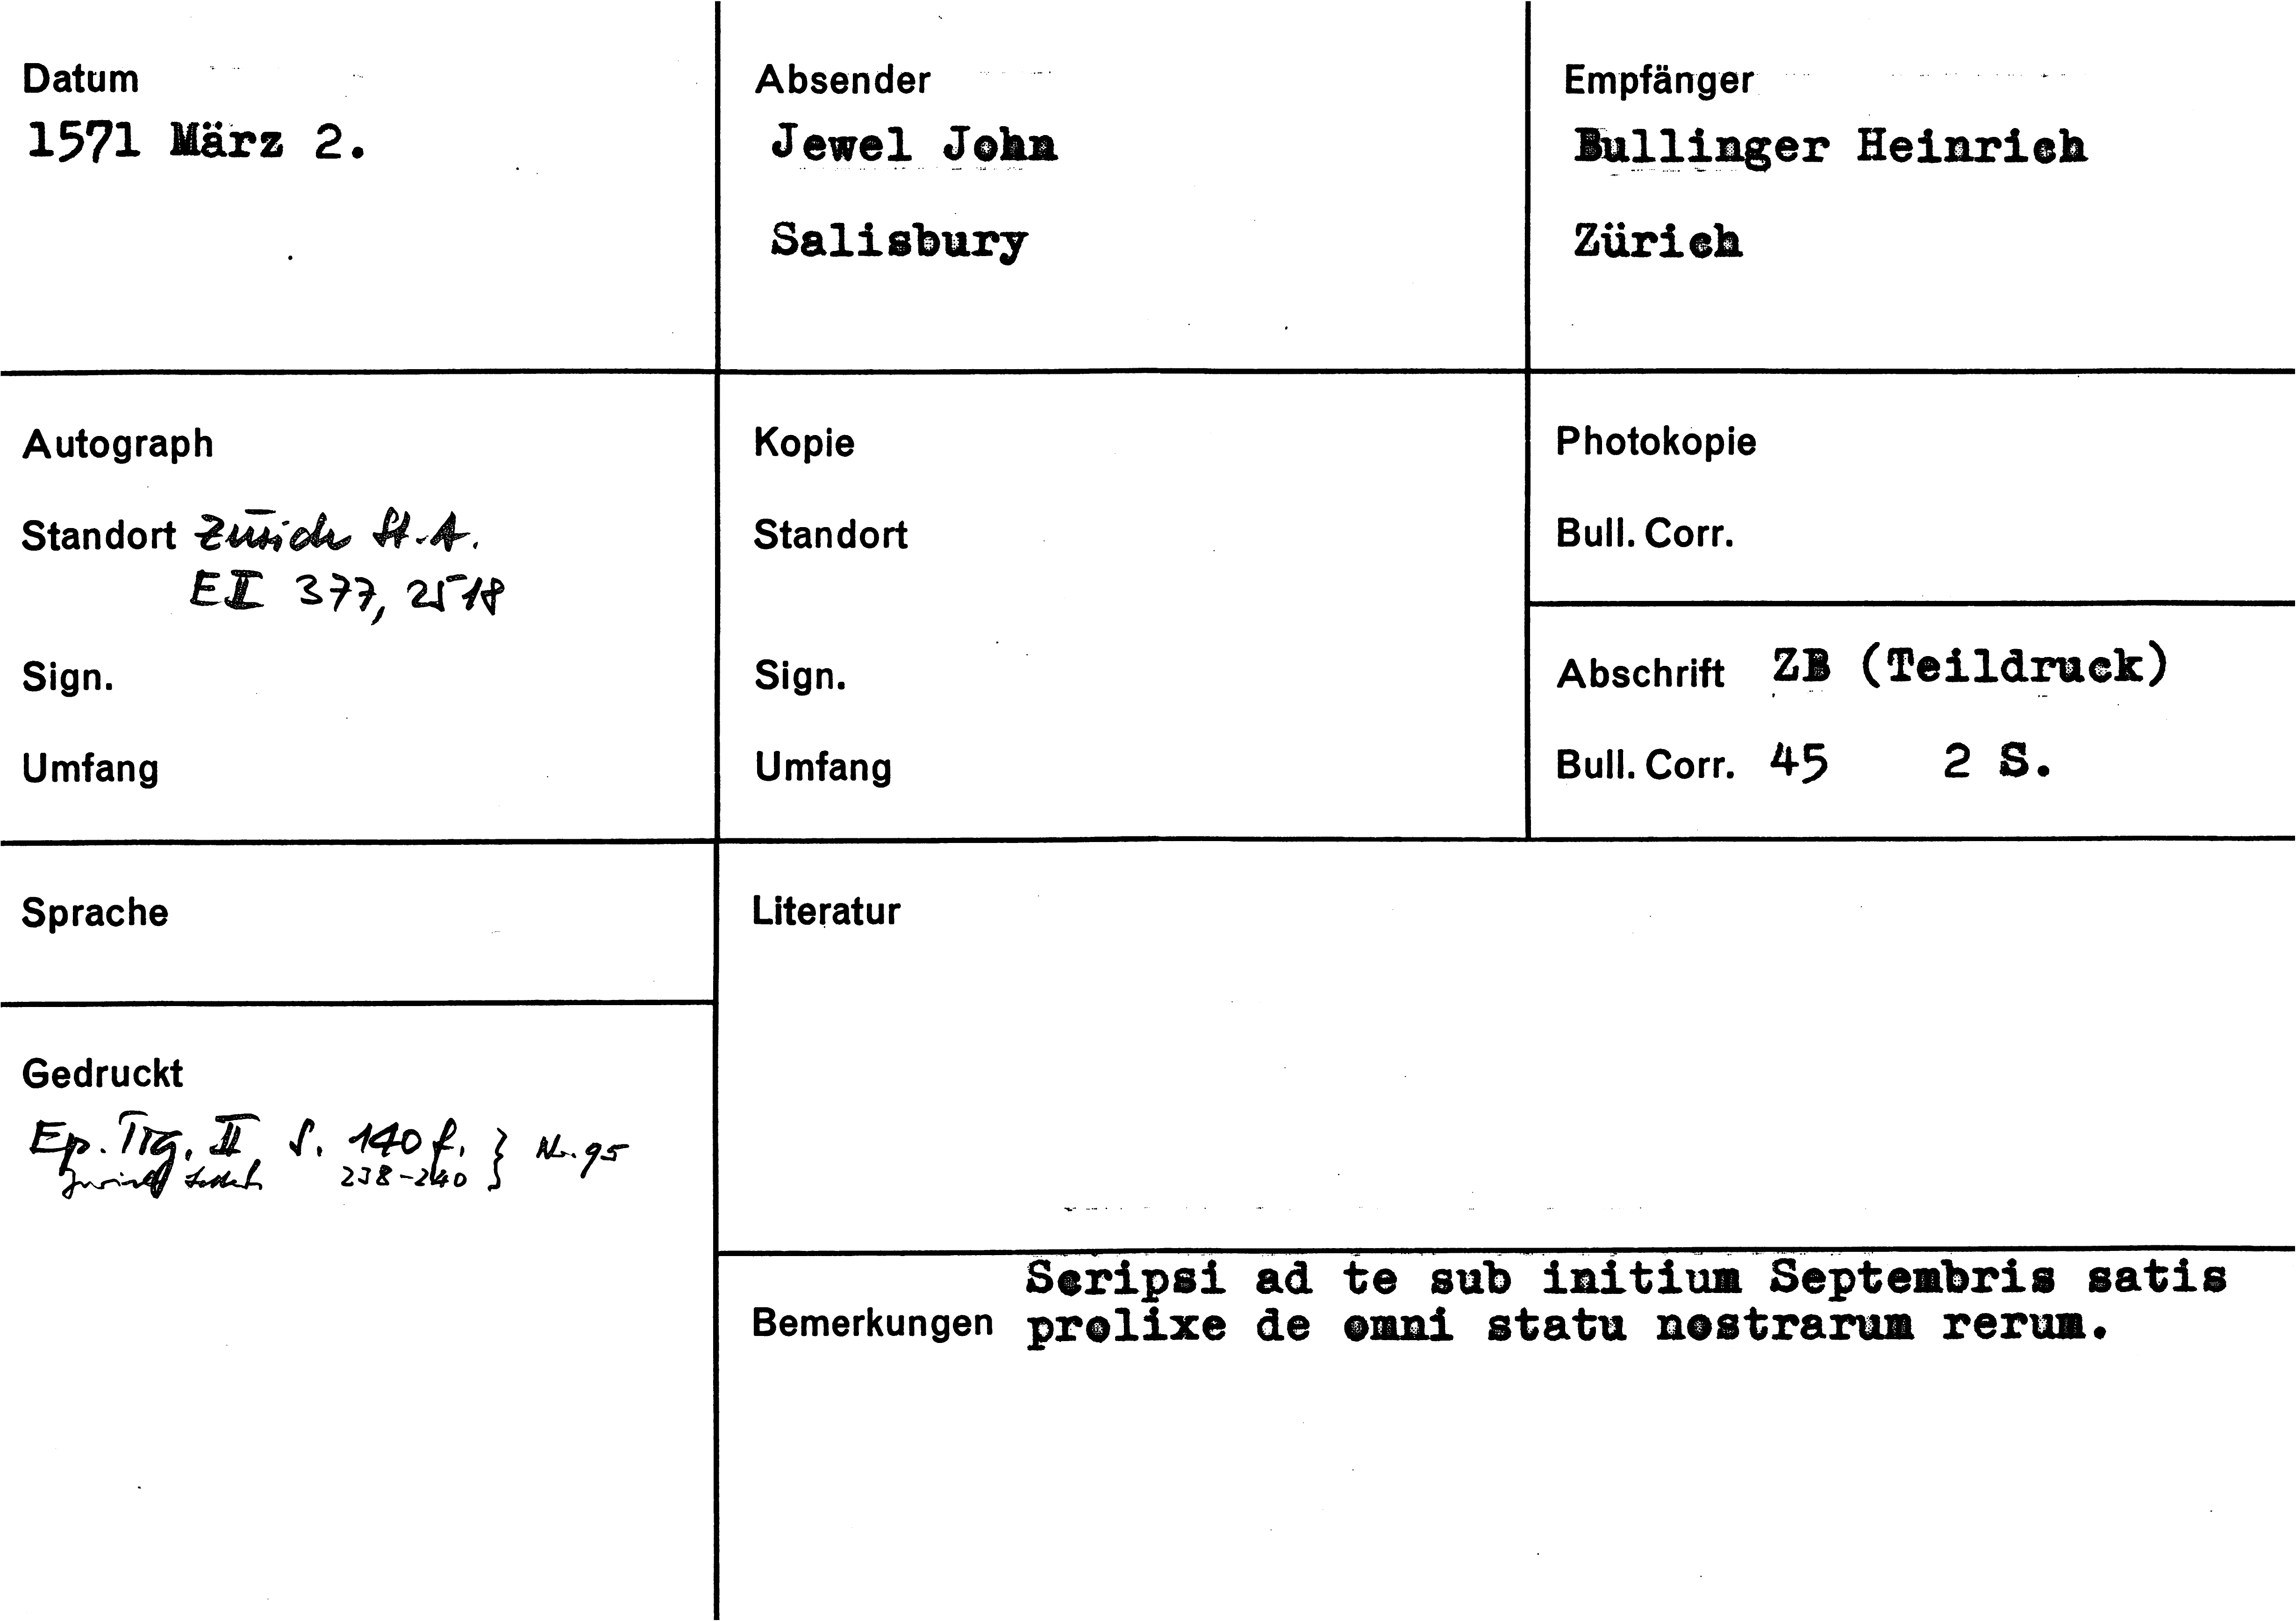 Datum
1571 März 2.
Absender
Jewel John
Salisbury
Empfänger
Bullinger Heinrich
Zürich
Autograph
Standort Zürich St.A.
E II 377, 2518
Sign.
Umfang
Kopie
Standort
Sign.
Umfang
Photokopie
Bull. Corr.
Abschrift ZB (Teildruck)
Bull. Corr. 45 2 S.
Sprache
Gedruckt
Ep. Tig. II S. 140 f. } Nr. 95
238-240
Literatur
Bemerkungen
Scripsi ad te sub initium Septembris satis
prolixe de omni statu nostrarum rerum.